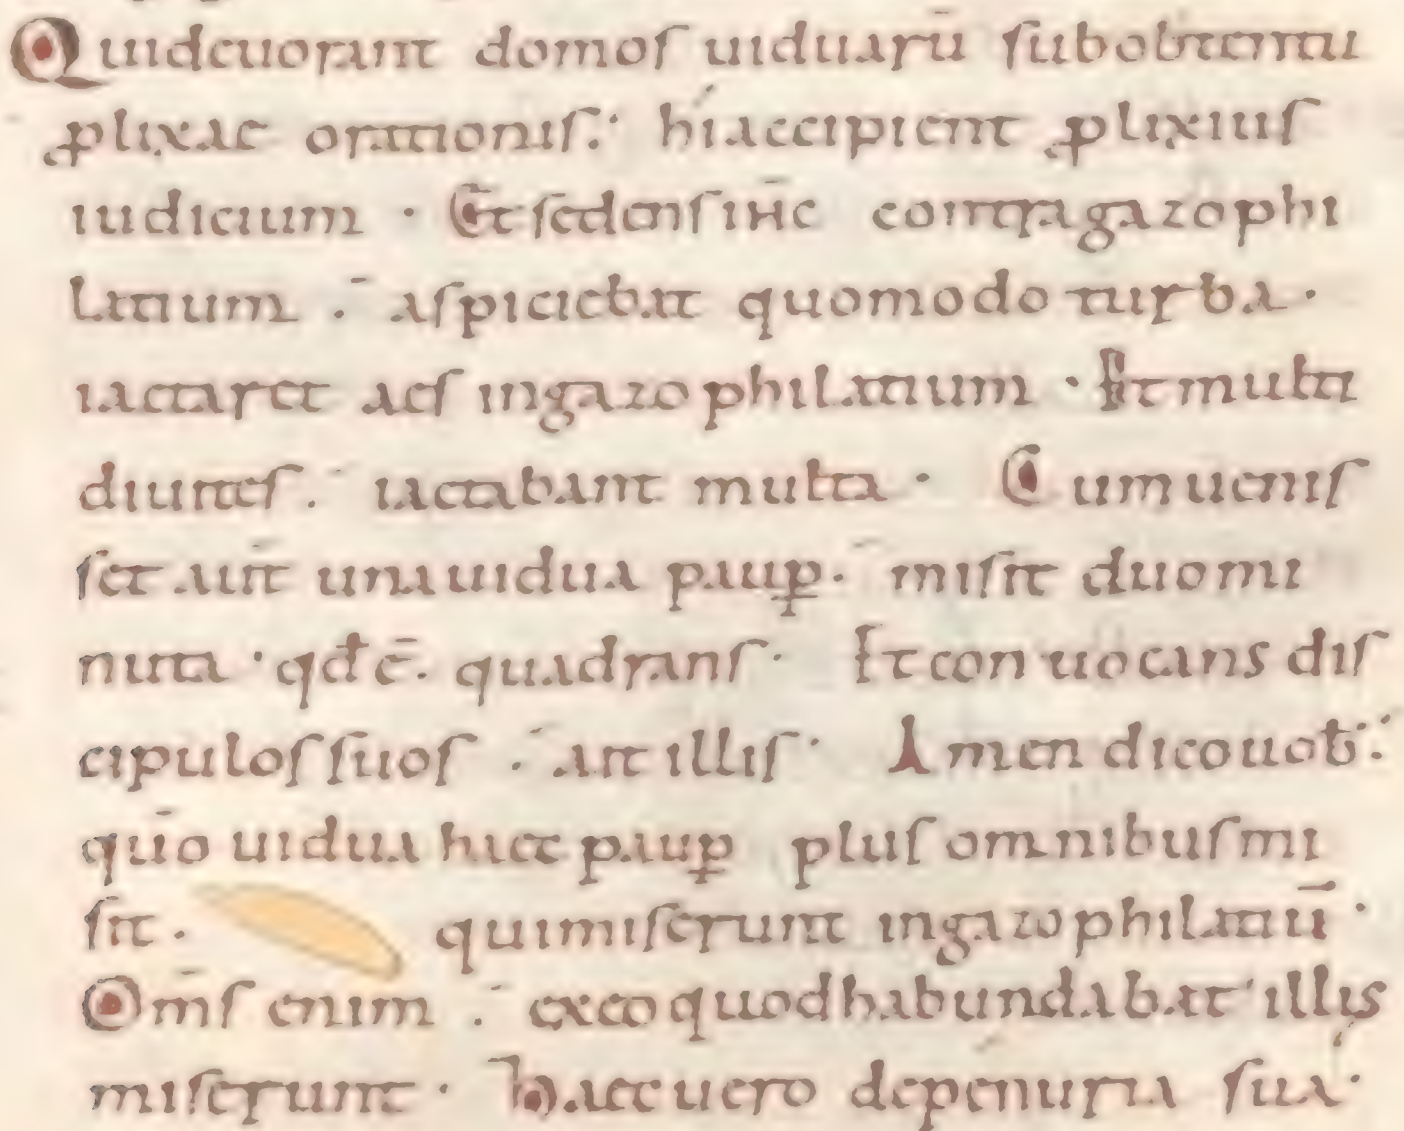 Quideuorant domos uiduarū subobtentu
ꝓlixae orationis. hiaccipient ꝓlixius
iudicium · Et sedens ihc̄ contragazophi
latium · aspiciebat quomodo turba ·
iactaret aes ingazophilatium · Et multi
diuites. iactabant multa · Cum uenis
set aut̄ una uidua pauꝑ · misit duo mi
nuta · qđ ē. quadrans · Et conuocans dis
cipulos suos · ait illis · Amen dico uob̄ :
qūo uidua haec pauꝑ plus omnibus mi
sit · qui miserunt ingazophilatiū ·
Om̄s enim · exeo quod habundabat illis
miserunt · haec uero depenuria sua ·